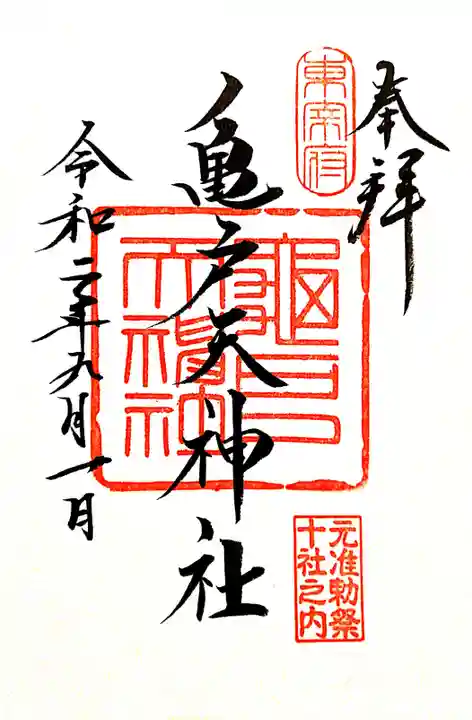 奉拝
東宰府
亀戸天神社
元准勅祭
十社之内
令和二年九月一日